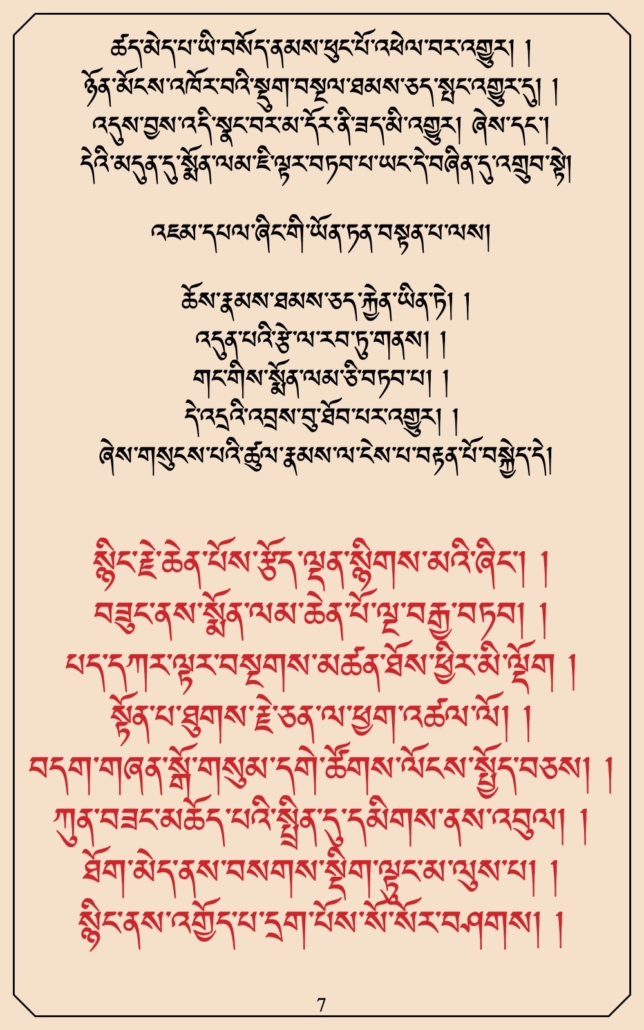 ཚད་མེད་པ་ཡི་བསོད་ནམས་ཕུང་པོ་འཕེལ་བར་འགྱུར། །
ཉོན་མོངས་འཁོར་བའི་སྡུག་བསྔལ་ཐམས་ཅད་སྤང་འགྱུར་དུ། །
འདུས་བྱས་འདི་སྣང་བར་མ་དོར་ནི་ཟད་མི་འགྱུར། ཞེས་དང་།
དེའི་མདུན་དུ་སྨོན་ལམ་ཇི་ལྟར་བཏབ་པ་ཡང་དེ་བཞིན་དུ་འགྲུབ་སྟེ།
འཇམ་དཔལ་ཞིང་གི་ཡོན་ཏན་བསྟན་པ་ལས།
ཆོས་རྣམས་ཐམས་ཅད་རྐྱེན་ཡིན་ཏེ། །
འདུན་པའི་རྩེ་ལ་རབ་ཏུ་གནས། །
གང་གིས་སྨོན་ལམ་ཅི་བཏབ་པ། །
དེ་འདྲའི་འབྲས་བུ་ཐོབ་པར་འགྱུར། །
ཞེས་གསུངས་པའི་ཚུལ་རྣམས་ལ་ངེས་པ་བརྟན་པོ་བསྐྱེད་དེ།
སྙིང་རྗེ་ཆེན་པོས་རྩོད་ལྡན་སྙིགས་མའི་ཞིང་། །
བཟུང་ནས་སྨོན་ལམ་ཆེན་པོ་ལྔ་བརྒྱ་བཏབ། །
པད་དཀར་ལྟར་བསྔགས་མཚན་ཐོས་ཕྱིར་མི་ལྡོག །
སྟོན་པ་ཐུགས་རྗེ་ཅན་ལ་ཕྱག་འཚལ་ལོ། །
བདག་གཞན་སྒོ་གསུམ་དགེ་ཚོགས་ལོངས་སྤྱོད་བཅས། །
ཀུན་བཟང་མཆོད་པའི་སྤྲིན་དུ་དམིགས་ནས་འབུལ། །
ཐོག་མེད་ནས་བསགས་སྡིག་ལྟུང་མ་ལུས་པ། །
སྙིང་ནས་འགྱོད་པ་དྲག་པོས་སོ་སོར་བཤགས། །
7